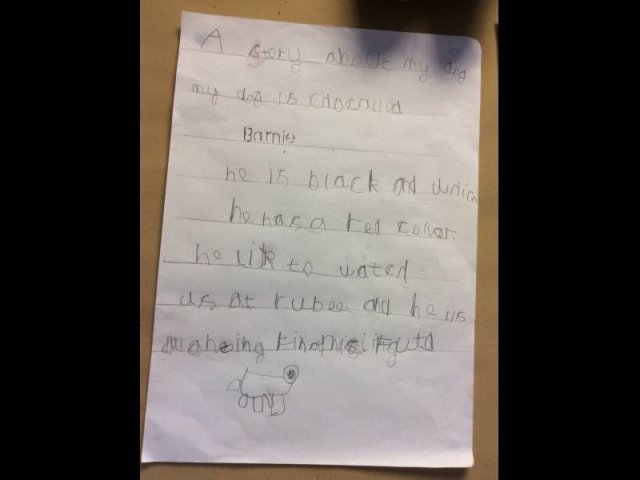 A story about my dog
my dog is cacauld
Barnie
he is black ad which
he has a red coller.
he lik to watcd
us at rubee and he us